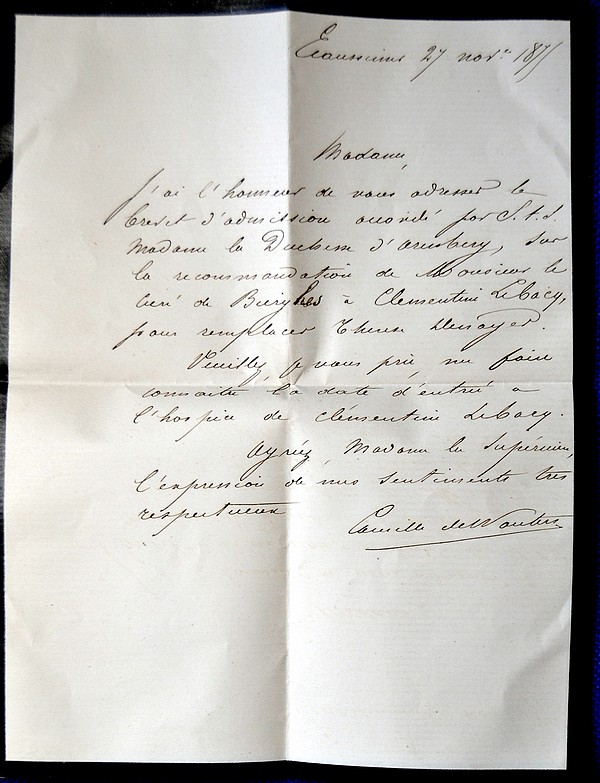 Ecaussinnes 27 nov.re 187
Madame,
J'ai l'honneur de vous adresser le
brevet d'admission accordé par S.A.S.
Madame la Duchesse d'Arenberg, sur
la recommandation de Monsieur le
curé de Bierghes à Clémentine Lebacq,
pour remplacer Thérèse
Veuillez, je vous prie me faire
connaitre la date d'entrée à
l'hospice de Clémentine Lebacq.
Agréez, Madame la Supérieure,
l'expression de mes sentiments très
respectueux
Camille de Wouters